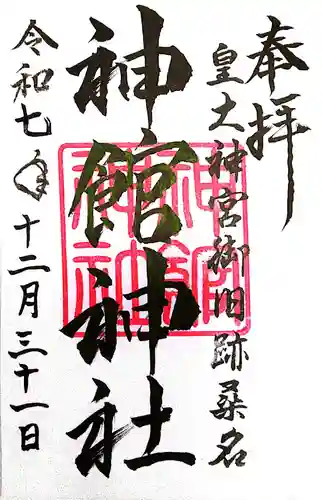 奉拝
皇大神宮御旧跡桑名
神館神社
神館
神社
令和七年十二月三十一日